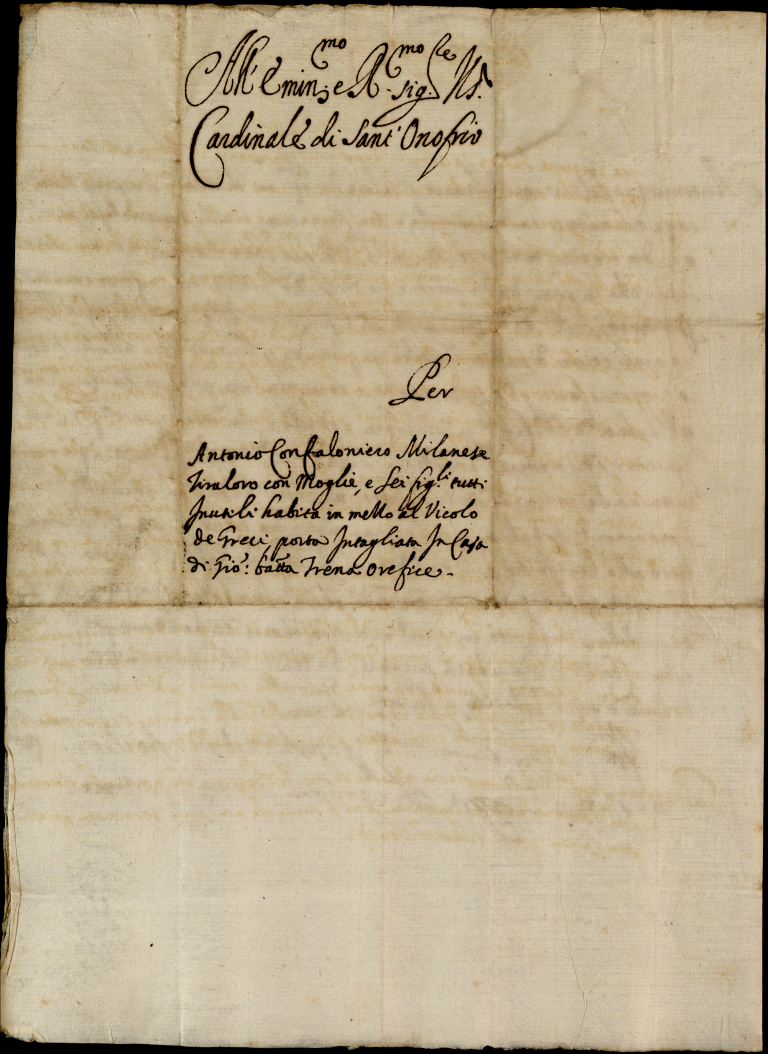 All' Emin.mo e R.mo sig.re Il s.r
Cardinale di Sant' Onofrio
Per
Antonio Confaloniero Milanese
Tiraloro con Moglie, e sei figl.li tutti
Inutili habita in mezzo al Vicolo
de Greci porta Intagliata In Casa
di Gio: batta Trena Orefice.